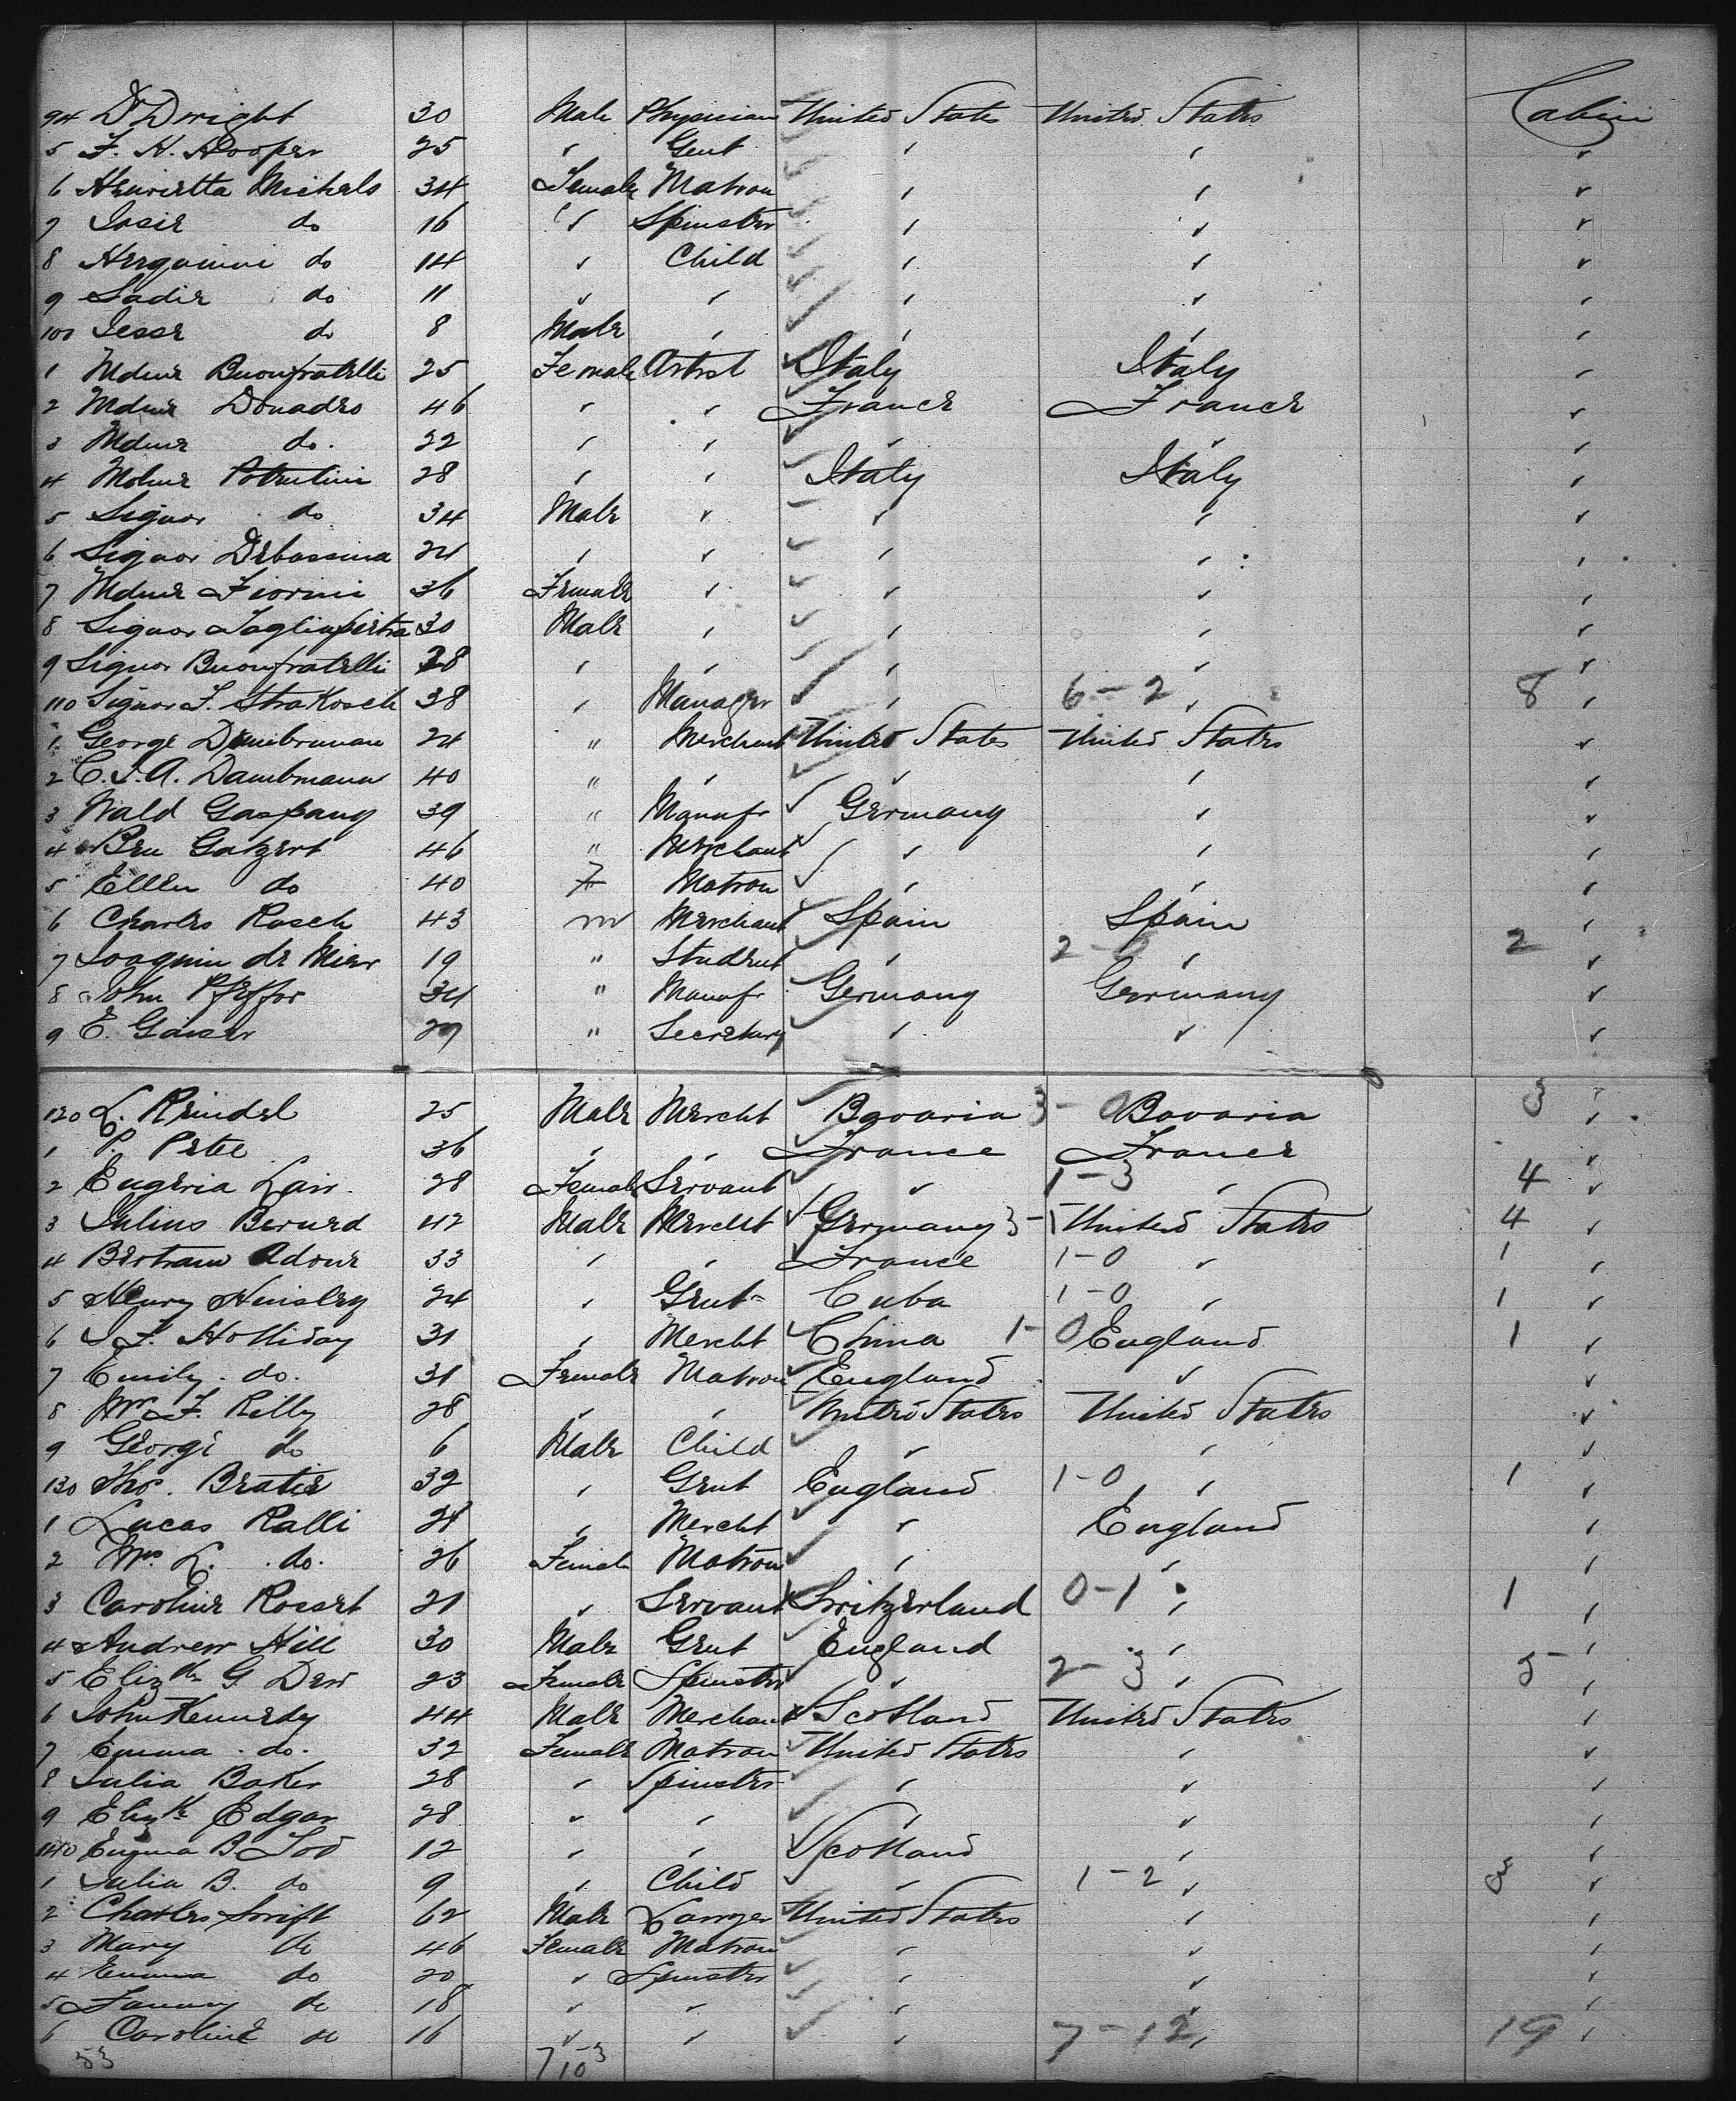 Cabin
94 Dr Dwight 30 Male Physician United States United States
5 F. H. Hooper 25 " Gent " " "
6 Henrietta Michels 34 Female Matron " " "
7 Josie do 16 " Spinster " " "
8 do 14 " Child " " "
9 Sadie do 11 " " " " "
100 Jesse do 8 Male " " " "
1 Mdme Buonfratelli 25 Female Artist Italy Italy "
2 Mdme Donadio 46 " " France France "
3 Mdme do. 22 " " " " "
4 Mdme 28 " " Italy Italy "
5 Signor do 34 Male " " " "
6 Signor Debassina 24 " " " " "
7 Mdme Fiorini 36 Female " " " "
8 Signor Tagliapietra 30 Male " " " "
9 Signor Buonfratelli 28 " " " " "
110 Signor F. Strakosch 38 " Manager " 6-2 " 8 "
1 George 24 " Merchant United States United States "
2 C. F. A. Dambmann 40 " " " " "
3 Wald Gaspany 39 " Manufr Germany " "
4 Ben Gatzert 46 " Merchant " " "
5 Ellen do 40 F Matron " " "
6 Charles Rasch 43 m Merchant Spain Spain "
7 Joaquin de Mier 19 " Student " 2-0 " 2 "
8 John Pfeffer 34 " Manufr Germany Germany "
9 E. Gaiser 29 " Secretary " " "
120 L. Reindel 25 Male Mercht Bavaria 3-0 Bavaria 3 "
1 P. Petee 36 " " France France "
2 Eugenia Lair 28 Female Servant " 1-3 " 4 "
3 Julius Berned 42 Male Mercht Germany 3-1 United States 4 "
4 Bertram Adoue 33 " " France 1-0 " 1 "
5 Henry Hinsley 24 " Gent Cuba 1-0 " 1 "
6 J. F. Holliday 31 " Mercht China 1-0 England 1 "
7 Emily do. 31 Female Matron England " "
8 Mrs F. Killy 28 " " United States United States "
9 George do 6 Male Child " " "
130 Thos. Bratie 32 " Gent England 1-0 " 1 "
1 Lucas Ralli 28 " Mercht " England "
2 Mrs L. do. 26 Female Matron " " "
3 Caroline Rosset 21 " Servant Switzerland 0-1 " 1 "
4 Andrew Hill 30 Male Gent England " "
5 Elizth G. Dew 23 Female Spinster " 2-3 " 5 "
6 John Kennedy 44 Male Merchant Scotland United States "
7 Emma do. 32 Female Matron United States " "
8 Julia Baker 28 " Spinster " " "
9 Elizth Edgar 28 " " " " "
140 B Tod 12 " " Scotland " "
1 Julia B. do 9 " Child " 1-2 " 3 "
2 Charles Swift 62 Male Lawyer United States " "
3 Mary do 46 Female Matron " " "
4 Emma do 20 " Spinster " " "
5 Fanny do 18 " " " " "
6 Caroline do 16 " " " 7-12 " 19 "
53 7 10 3